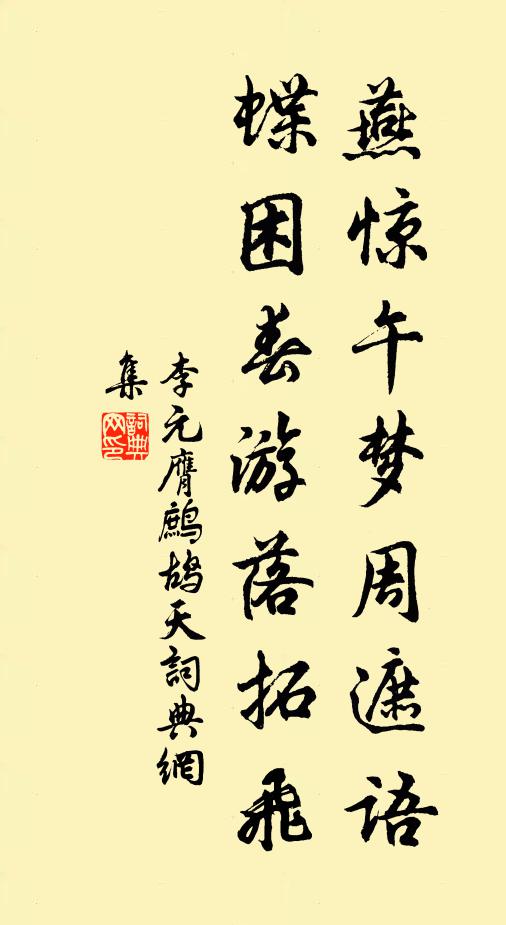 燕惊午梦周遮语
蝶困春游落拓飛
李元膺鷓鴣天詞典網
集
詞典网印